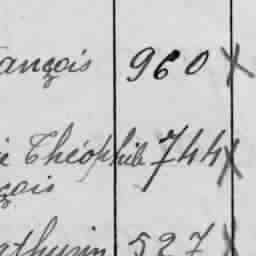 ançois 960 X
e Théophile 744 X
çois
athurin 527 X